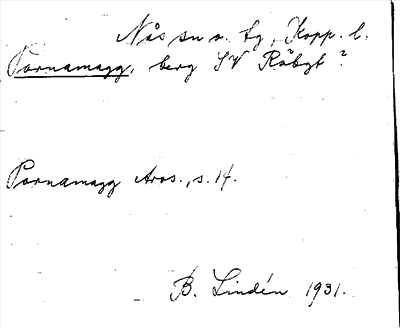 Nås sn o. tg, Kopp. l.
Pornamagg, berg SV Råbgt?
Pornamagg Aros., s. 14.
B. Lindén 1931.